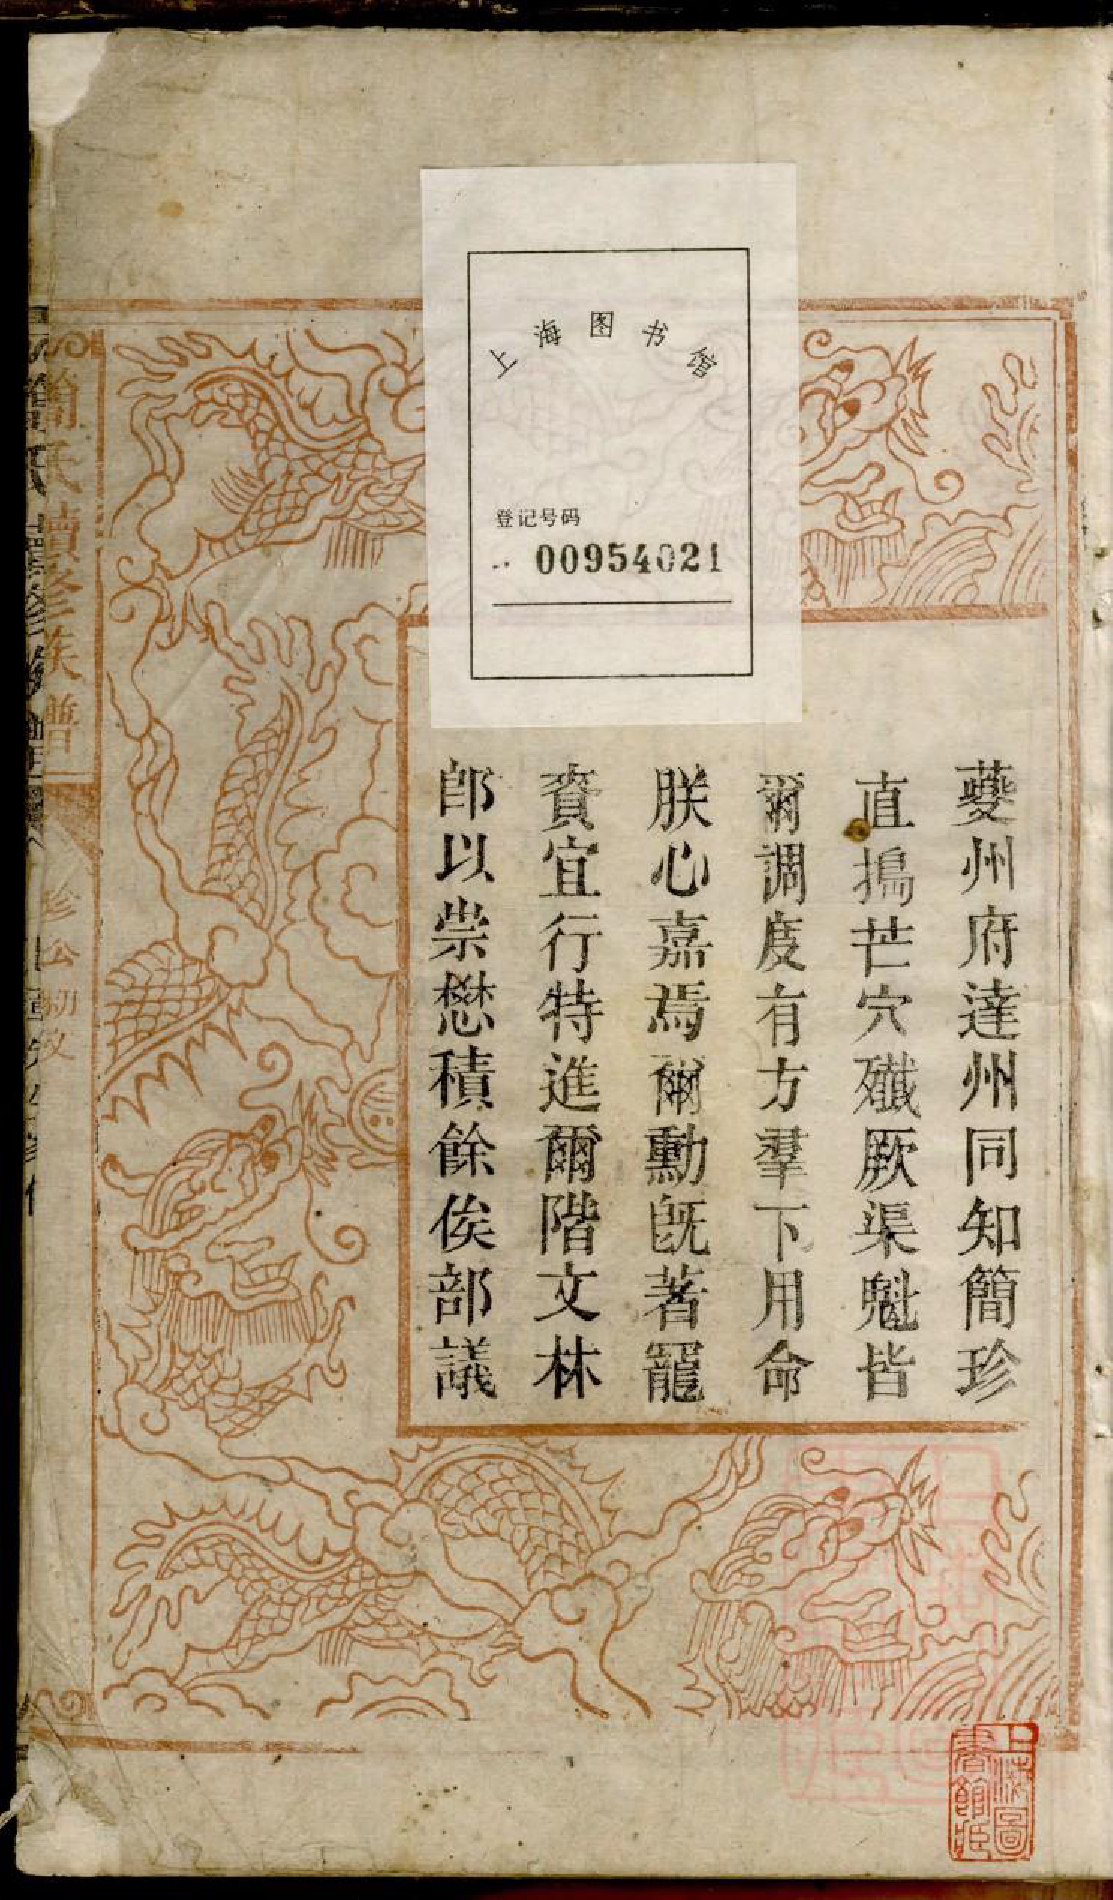 上海图书馆
登记号码
00954021
夔州府達州同知簡珍
直搗芒穴殲厥渠魁皆
爾調度有方羣下用命
朕心嘉焉爾勳旣著寵
賚宜行特進爾階文林
郎以崇懋積餘俟部議
簡氏續修族譜
珍公勅文
上海圖書館藏